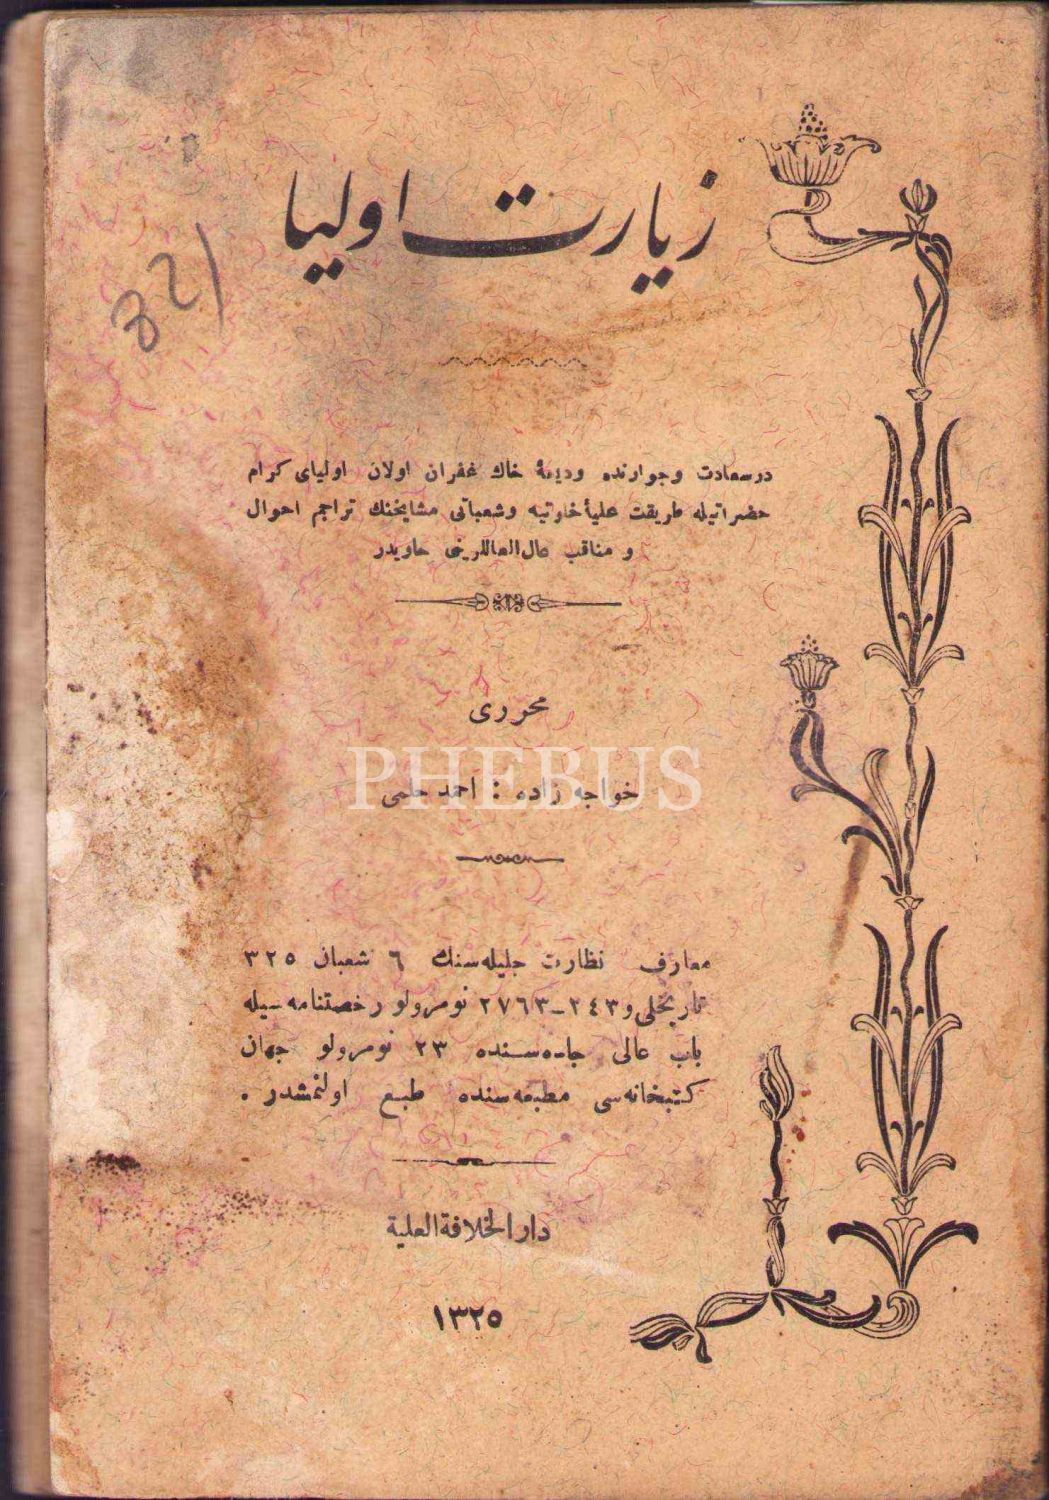 زيارت اوليا
821
در سعادت وجوارنده وديعهٔ خاك غفران اولان اولياى كرام
حضراتيله طريقت عليهٔ خلوتيه وشعبانى مشايخنك تراجم احوال
و مناقب عال العاللرينى حاويدر
محررى
PHEBUS
خواجه زاده : احمد حلمى
معارف نظارت جليله سنك ٦ شعبان ٣٢٥
تاريخلى و ٢٤٣ــ٢٧٦٣ نومرولو رخصتنامه سيله
باب عالى جاده سنده ٢٣ نومرولو جهان
كتبخانه سى مطبعه سنده طبع اولنمشدر .
دار الخلافة العلية
١٣٢٥